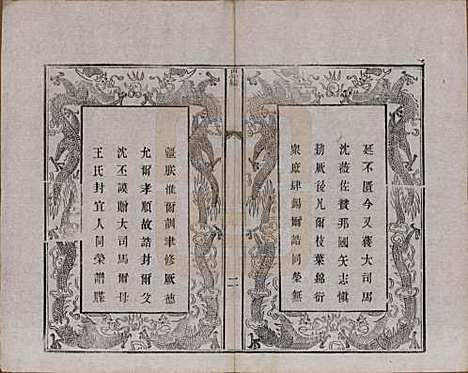 廷不匱今又蔣大司馬
沈薇佐贊那國矢志愼
勝厥後凡爾枝葉綿衍
衆庶肆錫爾誥同榮無
疆朕惟爾訓聿修厥德
允爾孝順故誥封爾父
沈丕謨贈大司馬爾母
王氏封宜人同榮譜牒
二